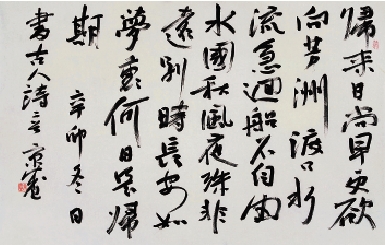 歸来日尚早更欲
向芳洲渡口水
流急迴船不自由
水國秋風夜殊非
遠別時長安如
夢裏何日是歸
期 辛卯冬日
書古人詩